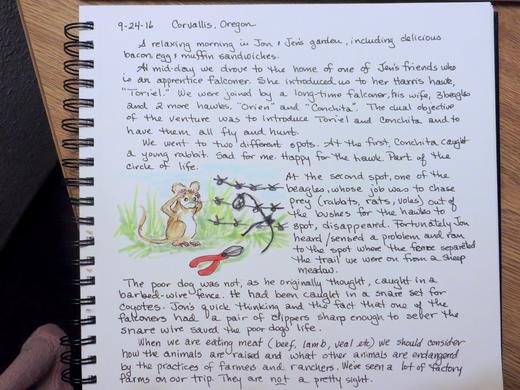 9-24-16 Corvallis, Oregon
A relaxing morning in Jon & Jen's garden, including delicious
bacon, egg & muffin sandwiches.
At mid-day we drove to the home of one of Jen's friends who
is an apprentice falconer. She introduced us to her Harris hawk,
"Toriel." We were joined by a long-time falconer, his wife, 3 beagles
and 2 more hawks, "Orien" and "Conchita". The dual objective
of the venture was to introduce Toriel and Conchita and to
have them all fly and hunt.
We went to two different spots. At the first, Conchita, caught
a young rabbit. Sad for me. Happy for the hawk. Part of the
circle of life.
At the second spot, one of the
beagles, whose job was to chase
prey (rabbits, rats, voles) out of
the bushes for the hawks to
spot, disappeared. Fortunately Jon
heard/sensed a problem and ran
to the spot where the fence separated
the trail we were on from a sheep
meadow.
The poor dog was not, as he originally thought, caught in a
barbed-wire fence. He had been caught in a snare set for
coyotes. Jon's quick thinking and the fact that one of the
falconers had a pair of clippers sharp enough to sever the
snare wire saved the poor dog's life.
When we are eating meat (beef, lamb, veal etc) we should consider
how the animals are raised and what other animals are endangered
by the practices of farmers and ranchers. We've seen a lot of factory
farms on our trip. They are not a pretty sight.